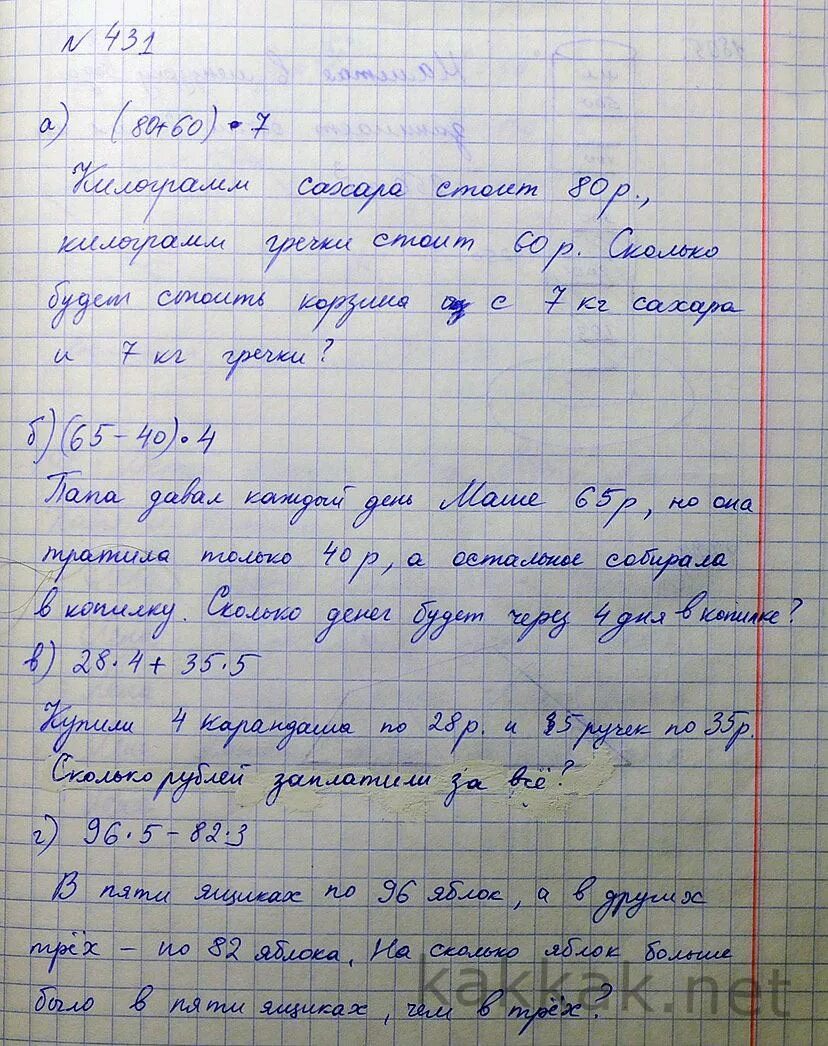 N 431
а) (80+60) · 7
Килограмм сахара стоит 80р.,
килограмм гречки стоит 60р. Сколько
будет стоить корзина с 7 кг сахара
и 7 кг гречки?
б) (65-40)·4
Папа давал каждый день Маше 65р, но она
тратила только 40р, а остальное собирала
в копилку. Сколько денег будет через 4 дня в копилке?
в) 28·4+35·5
Купили 4 карандаша по 28р. и 5 ручек по 35р.
Сколько рублей заплатили за всё?
г) 96·5-82·3
В пяти ящиках по 96 яблок, а в других
трёх - по 82 яблока. На сколько яблок больше
было в пяти ящиках, чем в трёх?
kakkak.net